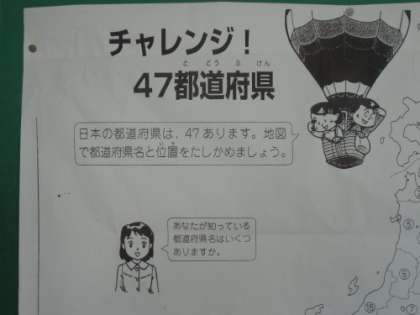 チャレンジ！
と どう ふ けん
47都道府県
日本の都道府県は、47あります。地図
で都道府県名と位置をたしかめましょう。
あなたが知っている
都道府県名はいくつ
ありますか。
⑤